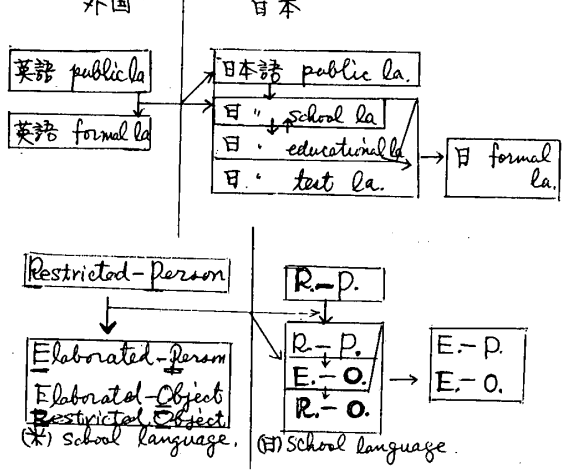 外国
日本
英語 public la
英語 formal la
日本語 public la.
日 〃 school la
日 〃 educational la
日 〃 test la.
日 formal
la.
Restricted-Person
Elaborated-Person
Elaborated-Object
Restricted Object
(米) School language.
R.-P.
R-P.
E.-O.
R.-O.
(日) School language.
E.-P.
E.-O.